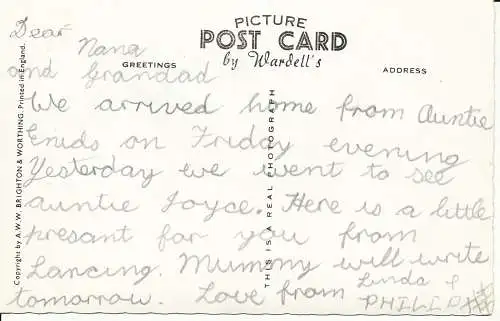 PICTURE
POST CARD
by Wardell's
GREETINGS
ADDRESS
Dear Nana
and Grandad
We arrived home from Auntie
Enids on Friday evening
Yesterday we went to see
auntie Joyce. Here is a little
presant for you from
Lancing. Mummy will write
tomorrow. Love from Linda &
PHILLP XXX
Copyright by A.W.W. BRIGHTON & WORTHING. Printed in England.
THIS IS A REAL PHOTOGRAPH